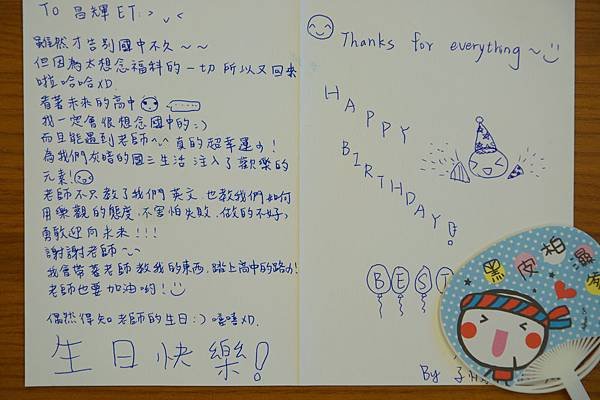 To 昌輝ET:>ˇ<
雖然才告別國中不久~~
但因為太想念福科的一切 所以又回來
啦哈哈XD.
看著未來的高中
我一定會很想念國中的:)
而且能遇到老師~~真的超幸運ㄉ!
為我們灰暗的國三生活 注入了歡樂的
元素!
老師不只教了我們英文.也教我們如何
用樂觀的態度.不害怕失敗.做的不好,
勇敢迎向未來!!!
謝謝老師~~
我會帶著老師教我的東西.踏上高中的路ㄉ!
老師也要加油喲!
偶然得知老師的生日:)嘻嘻XD.
生日快樂!
Thanks for everything~
HAPPY
BIRTHDAY!
BEST
By 子
黑皮柏